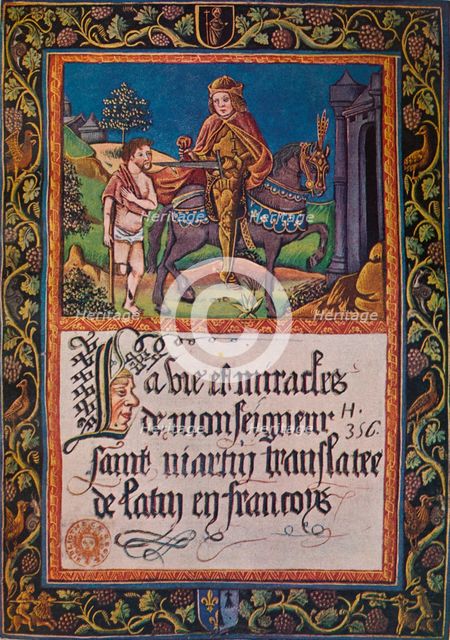 La vie et miracles
de monseigneur
saint martin translatee
de latin en francoys
H.
356.
Heritage Heritage Heritage
Heritage Heritage
Heritage Heritage